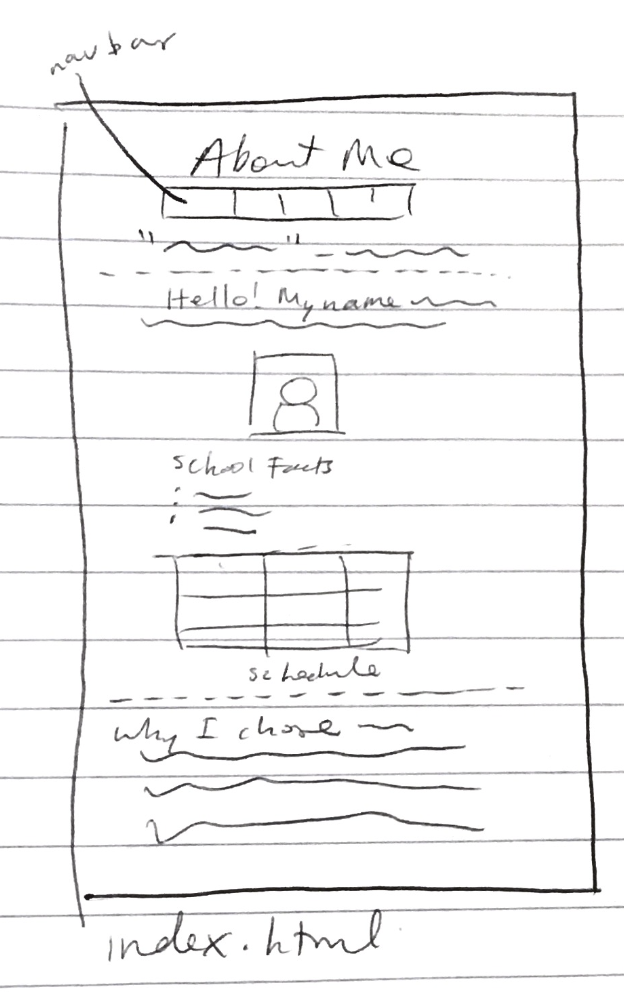 navbar
About Me
" "
Hello! My name
School Facts
Schedule
Why I chose
index.html